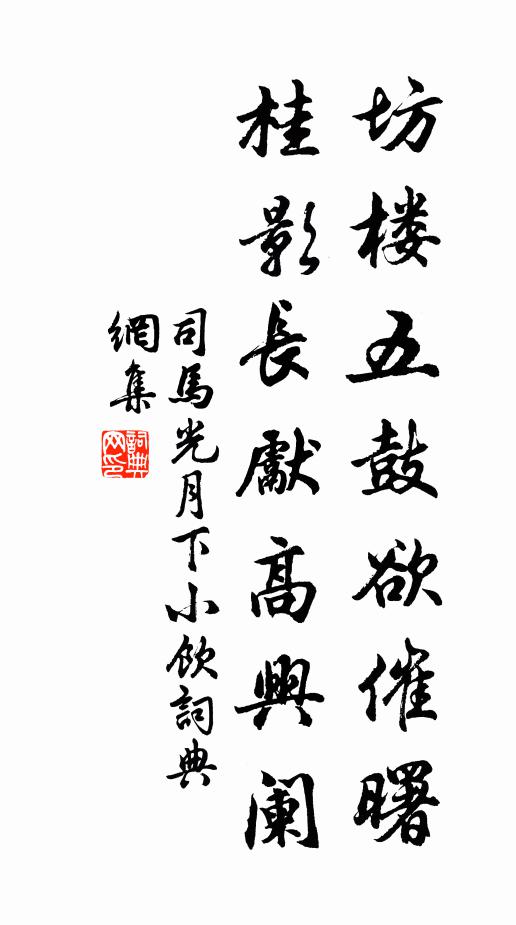 坊楼五鼓欲催曙
桂影長獻高興阑
司馬光月下小飲詞典
網集
詞典网印